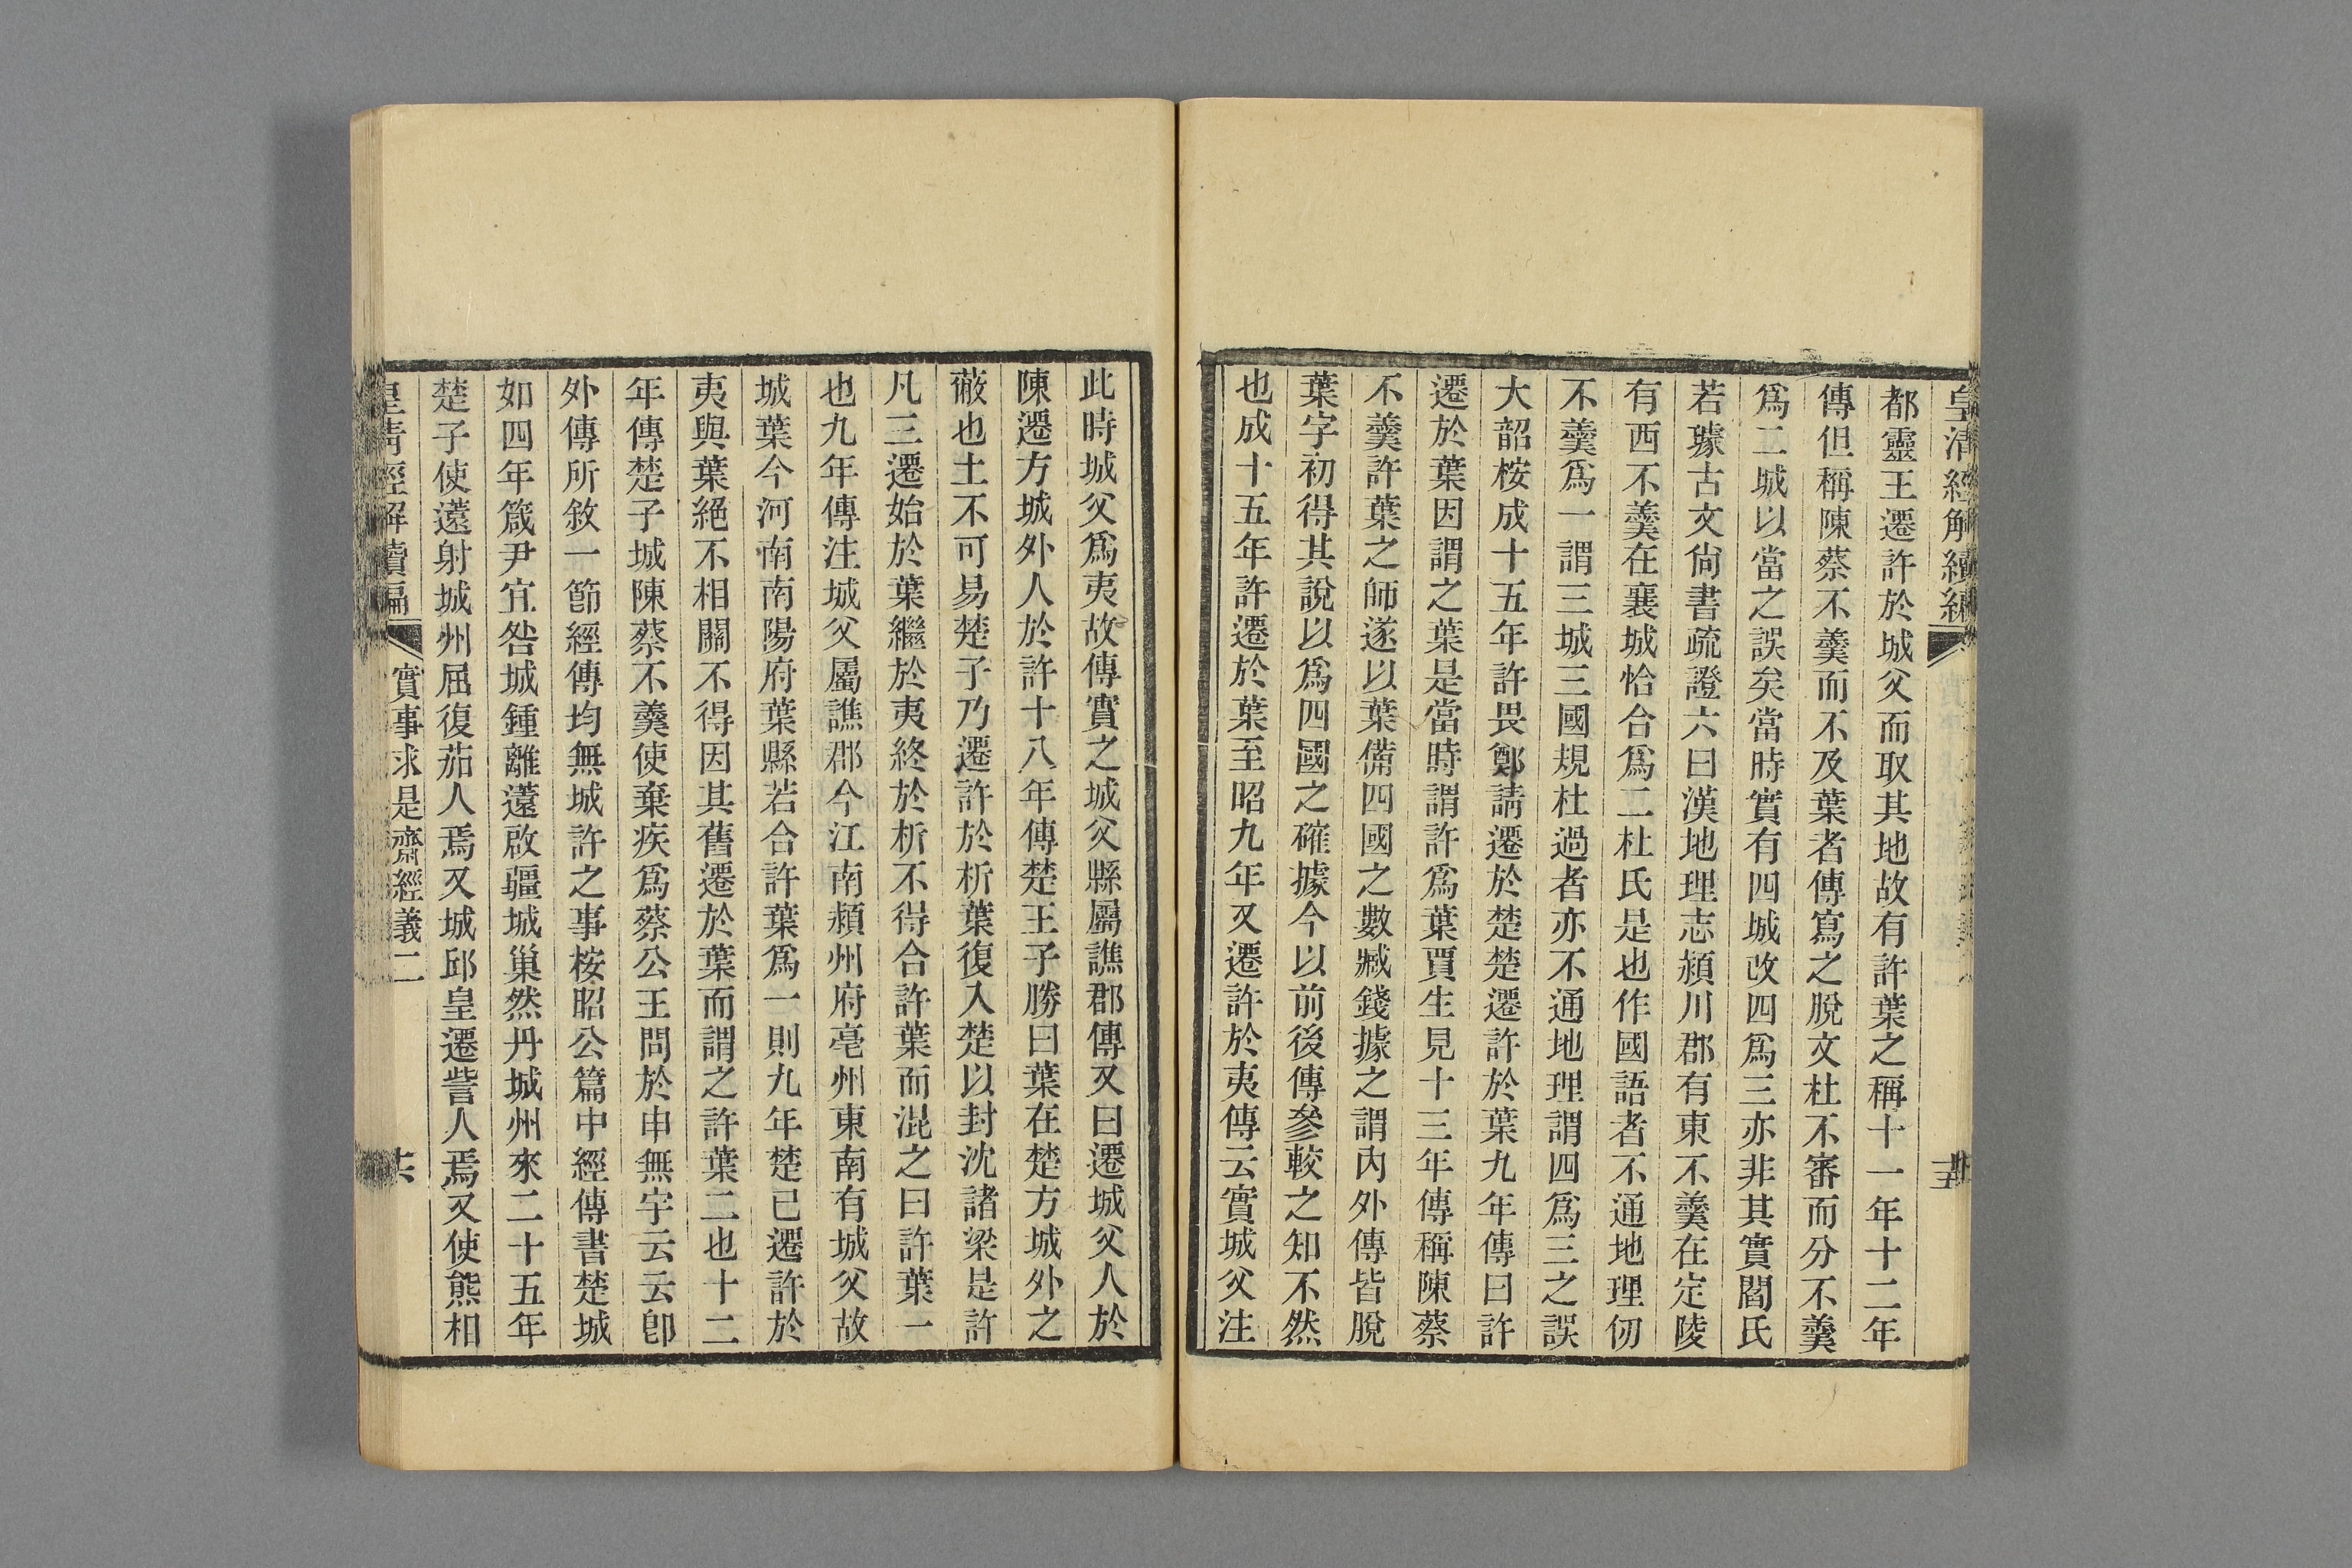 皇清經解續編
都靈王遷許於城父而取其地故有許葉之稱十一年十二年
傳但稱陳蔡不羹而不及葉者傳寫之脫文杜不審而分不羹
爲二城以當之誤矣當時實有四城改四爲三亦非其實閻氏
若璩古文尙書疏證六曰漢地理志潁川郡有東不羹在定陵
有西不羹在襄城恰合爲二杜氏是也作國語者不通地理仞
不羹爲一謂三城三國規杜過者亦不通地理謂四爲三之誤
大韶桉成十五年許畏鄭請遷於楚楚遷許於葉九年傳曰許
遷於葉因謂之葉是當時謂許爲葉賈生見十三年傳稱陳蔡
不羹許葉之師遂以葉備四國之數臧錢據之謂內外傳皆脫
葉字初得其說以爲四國之確據今以前後傳參較之知不然
也成十五年許遷於葉至昭九年又遷許於夷傳云實城父注
此時城父爲夷故傳實之城父縣屬譙郡傳又曰遷城父人於
陳遷方城外人於許十八年傳楚王子勝曰葉在楚方城外之
蔽也土不可易楚子乃遷許於析葉復入楚以封沈諸梁是許
凡三遷始於葉繼於夷終於析不得合許葉而混之曰許葉一
也九年傳注城父屬譙郡今江南潁州府亳州東南有城父故
城葉今河南南陽府葉縣若合許葉爲一則九年楚已遷許於
夷與葉絕不相關不得因其舊遷於葉而謂之許葉二也十二
年傳楚子城陳蔡不羹使棄疾爲蔡公王問於申無宇云云卽
外傳所敘一節經傳均無城許之事桉昭公篇中經傳書楚城
如四年箴尹宜咎城鍾離薳啟疆城巢然丹城州來二十五年
楚子使薳射城州屈復茄人焉又城邱皇遷訾人焉又使熊相
皇清經解續編　實事求是齋經義二